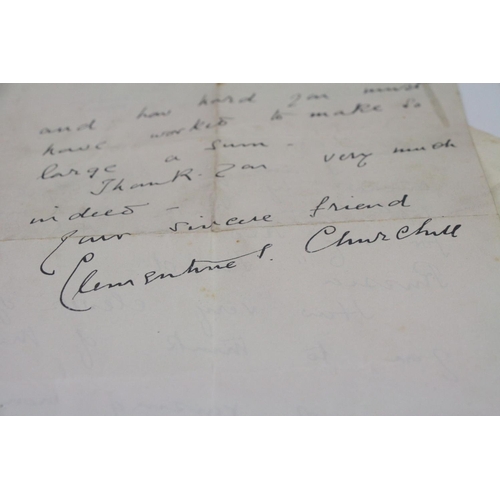 and how hard you must
have worked to make so
large a sum -
Thank you very much
indeed -
Your sincere friend
Clementine S. Churchill